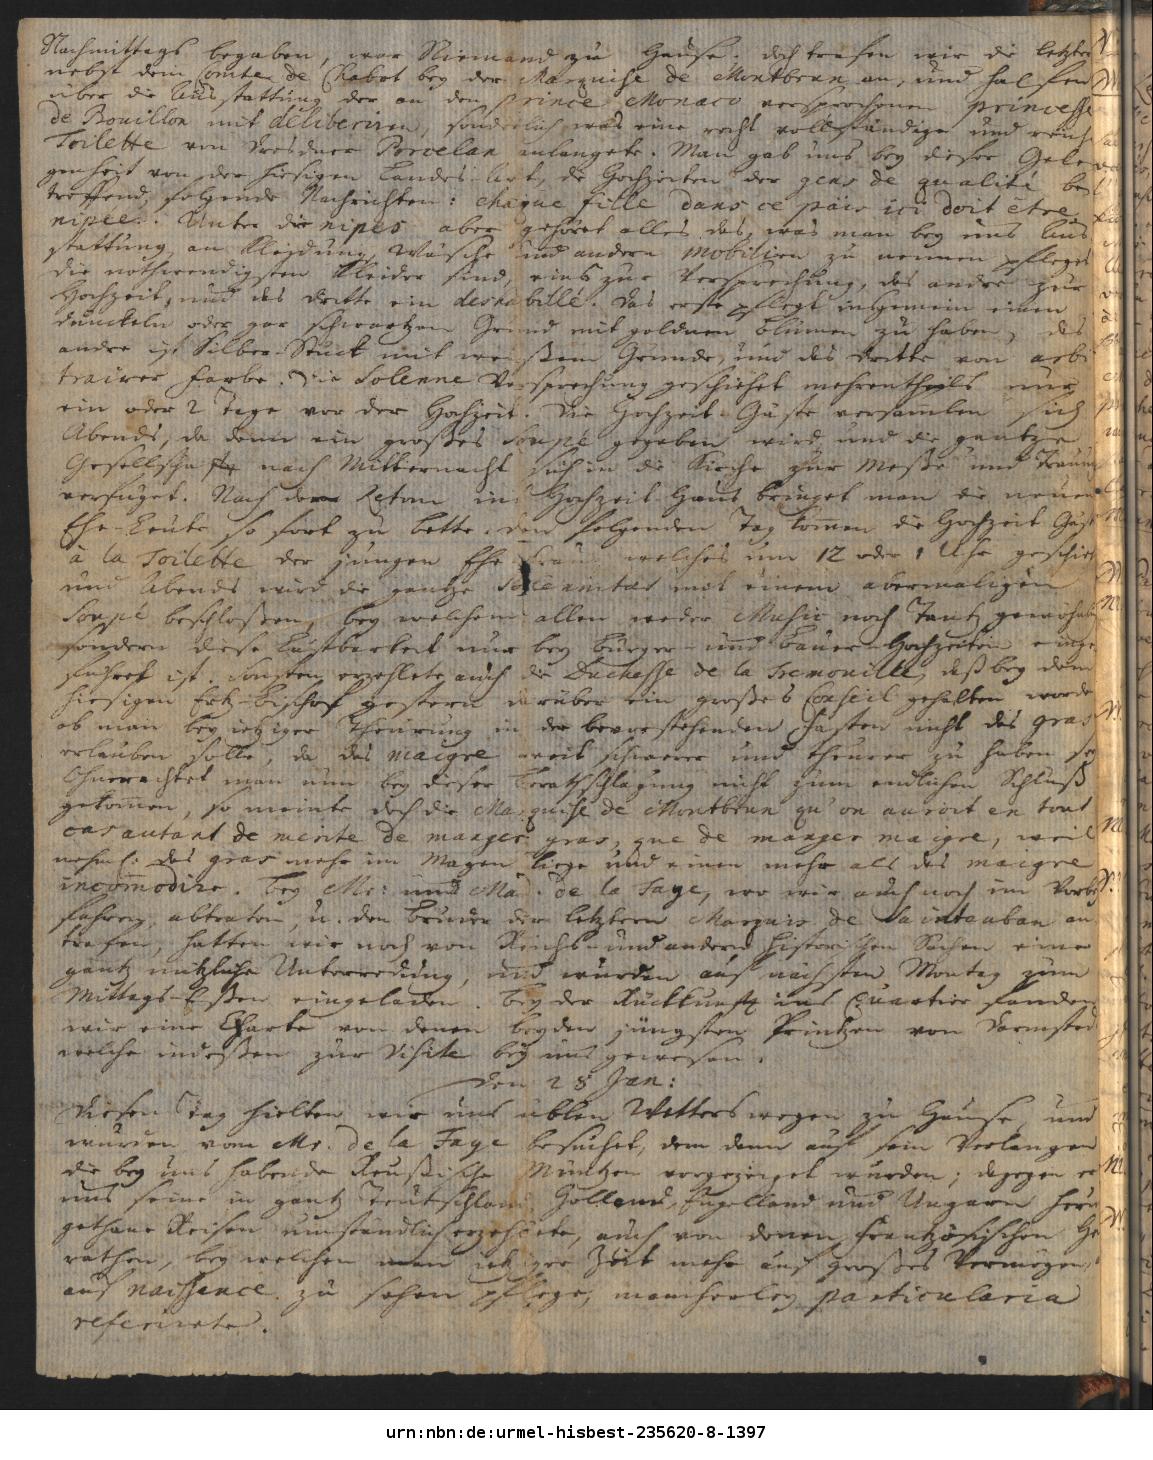 Nachmittags begaben, war Niemand zu Hause, doch trafen wir die letzte
nebst dem Comte de Chabot bey der Marquise de Montbrun an, und halfen
über die Ausstattung der an den Prince Monaco versprochenen princesse
de Bouillon mit deliberiren, sonderlich was eine recht vollständige und reiche
Toilette von Dresdner Porcelan anlangete. Man gab uns bey dieser Gele
genheit von der hiesigen Landes-Art, die Hochzeiten der gens de qualité be
treffend, folgende Nachrichten: chaque fille dans ce païs ici doit être
nipée. Unter die nipes aber gehöret alles das, was man bey uns Aus
stattung an Kleidung, Wäsche und andern Mobilien zu nennen pfleget
die nothwendigsten Kleider sind, eins zur Versprechung, das andre zur
Hochzeit, und das dritte ein deshabillé. Das erste pflegt insgemein einen
dunckeln oder gar schwartzen Grund mit goldnen Blumen zu haben, das
andre ist Silber-Stück mit weißem Grunde, und das dritte von arbi
trairer Farbe. Die Solenne Versprechung geschiehet mehrentheils nur
ein oder 2 Tage vor der Hochzeit. Die Hochzeit-Gäste versamlen sich
Abends, da denn ein großes Soupé gegeben wird, und die gantze
Gesellschafft nach Mitternacht sich in die Kirche zur Meße und Trauung
verfüget. Nach dem Retour ins Hochzeit-Haus bringet man die neuen
Ehe-Leute so fort zu Bette. Den folgenden Tag komen die Hochzeit Gäste
à la Toilette der jungen Ehe Frau, welches um 12 oder 1 Uhr geschieh
und Abends wird die gantze Solennitaet mit einem abermaligen
Soupé beschloßen, bey welchem allen weder Music noch Tantz gewöhnlich
sondern diese Lustbarkeit nur bey Bürger- und Bauer-Hochzeiten einge
führet ist. Sonsten erzehlete auch die Duchesse de la Tremouille, daß bey dem
hiesigen Ertz-Bischof gestern darüber ein großes Conseil gehalten worden
ob man bey ietziger Theurung in der bevorstehenden Fasten nicht das gras
erlauben solle, da das maigre weit schwerer und theurer zu haben sey
Ohnerachtet man nun bey dieser Berathschlagung nicht zum endlichen Schluß
gekomen, so meinte doch die Marquise de Montbrun qu'on auroit en tout
cas autant de merite de manger gras, que de manger maigre, weil
nehml. das gras mehr im Magen liege und einen mehr als das maigre
incommodire. Bey Mr. und Mad. de la Faye, wo wir auch noch im Vorbey
fahren, abtraten, u. den Bruder der letztern Marquis de Saintauban an
trafen, hatten wir noch von Reichs- und andern historischen Sachen eine
gantz nützliche Unterredung, und wurden auf nächsten Montag zum
Mittags-Eßen eingeladen. Bey der Rückkunft ins Quartier fanden
wir eine Charte von denen beyden jüngsten Printzen von Darmstad
welche indeßen zur Visite bey uns gewesen.
Den 28 Jan:
Diesen Tag hielten wir uns üblen Wetters wegen zu Hause, und
wurden vom Mr. de la Faye besuchet, dem denn auf sein Verlangen
die bey uns habende Reußische Müntzen vorgezeiget wurden; dagegen er
uns seine in gantz Teutschland, Holland, Engelland und Ungarn herum
gethane Reisen umständlich erzehlete, auch von denen frantzösischen Hey
rathen, bey welchen man ietziger Zeit mehr auf großes Vermögen, als
auf naissance zu sehen pflege, mancherley particularia
referirete.
urn:nbn:de:urmel-hisbest-235620-8-1397